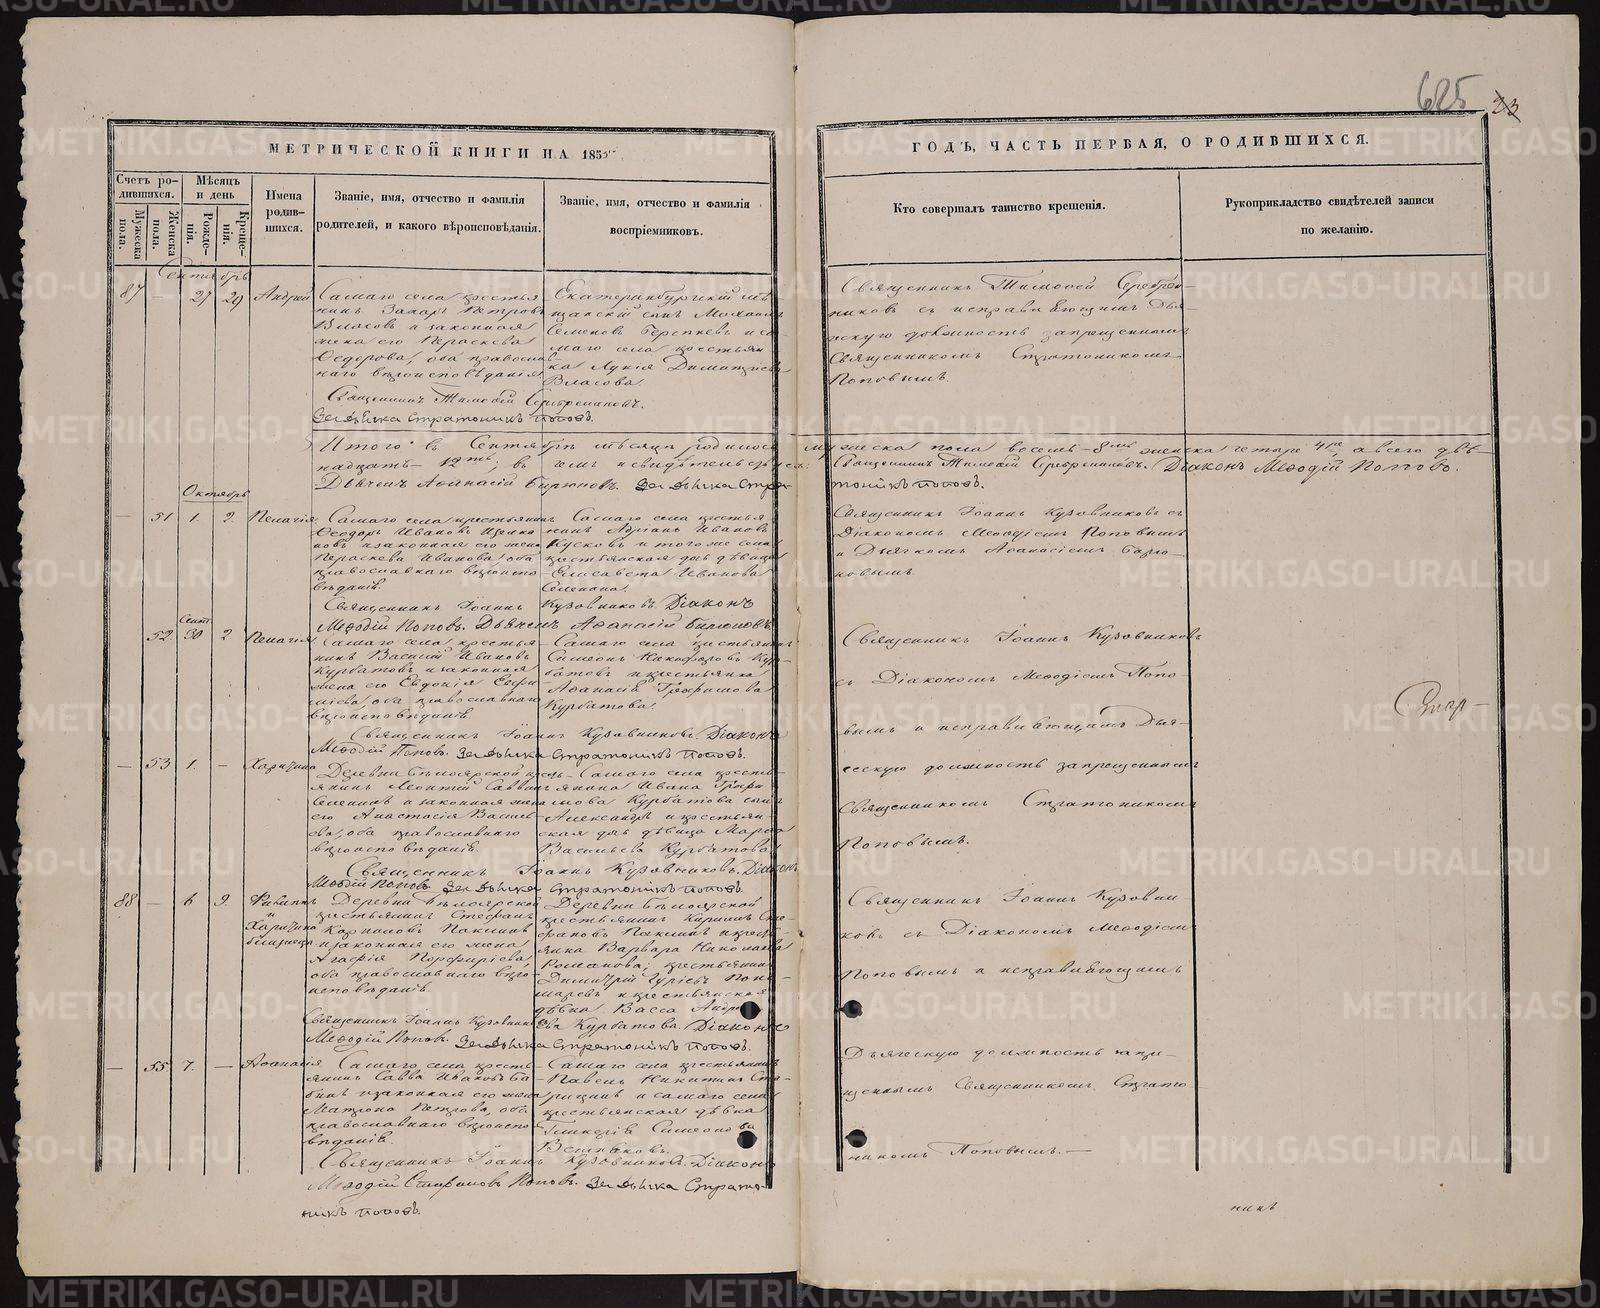 625 23
МЕТРИЧЕСКОЙ КНИГИ НА 1855
ГОДЪ, ЧАСТЬ ПЕРВАЯ, О РОДИВШИХСЯ.
Счетъ ро-
дившихся.
Мужеска пола.
Женска пола.
Мѣсяцъ
и день
Рожде-
нія.
Креще-
нія.
Имена
родив-
шихся.
Званіе, имя, отчество и фамилія
родителей, и какого вѣроисповѣданія.
Званіе, имя, отчество и фамилія
воспріемниковъ.
Кто совершалъ таинство крещенія.
Рукоприкладство свидѣтелей записи
по желанію.
Сентябрь
87 — 27 29 Андрей
Самаго села крестья
нинъ Захаръ Петровъ
Власовъ и законная
жена его Параскева
Ѳедорова, оба православ-
наго вѣроисповѣданія
Екатеринбургскій мѣ
щанскій сынъ Михаилъ
Семеновъ и са-
маго села крестьян
ка Лукія Димитріева
Власова.
Священникъ Тимоѳей Серебрен-
никовъ съ исправляющимъ Дья-
ческую должность запрещеннымъ
Священникомъ Стратоникомъ
Поповымъ.
Священникъ Тимоѳей Серебренниковъ.
За дьячка Стратоникъ Поповъ.
Итого въ Сентябрѣ мѣсяцѣ родилось мужеска пола восемь 8мь женска четыре 4ре, а всего двѣ-
надцать 12ть, въ чемъ и свидѣтельствуемъ: Священникъ Тимоѳей Серебренниковъ. Діаконъ Меѳодій Поповъ.
Дьячекъ Аѳанасій Бирюковъ. За дьячка Стра-
тоникъ Поповъ.
Октябрь
— 51 1. 2. Пелагія
Самаго села крестьянинъ
Ѳеодоръ Ивановъ
и законная его жена
Параскева Иванова, оба
православнаго вѣроиспо-
вѣданія.
Самаго села крестья
нинъ Адріанъ Ивановъ
Кусковъ и того же села
крестьянская дочь дѣвица
Елисавета Иванова
Священникъ Іоаннъ Кузовниковъ съ
Діакономъ Меѳодіемъ Поповымъ
и Дьячкомъ Аѳанасіемъ Бирю-
ковымъ
Священникъ Іоаннъ Кузовниковъ. Діаконъ
Меѳодій Поповъ. Дьячекъ Аѳанасій Бирюковъ.
— 52 Сент. 30 2. Пелагія
Самаго села крестья
нинъ Василій Ивановъ
Курбатовъ и законная
жена его Евдокія
оба православнаго
вѣроисповѣданія.
Самаго села крестьянинъ
Симеонъ Никифоровъ Кур-
батовъ и крестьянка
Аѳанасія Трофимова
Курбатова.
Священникъ Іоаннъ Кузовниковъ
съ Діакономъ Меѳодіемъ Попо
вымъ и исправляющимъ Дья-
ческую должность запрещеннымъ
Священникомъ Стратоникомъ
Поповымъ.
Священникъ Іоаннъ Кузовниковъ. Діаконъ
Меѳодій Поповъ. За дьячка Стратоникъ Поповъ.
— 53 1. — Харитина
Деревни Бѣлоярской крес-
янинъ Леонтій Саввинъ
и законная жена
его Анастасія Василь-
ева, оба православнаго
вѣроисповѣданія.
Самаго села кресть-
янина Ивана Трофи
мова Курбатова сынъ
Александръ и крестьян-
ская дочь дѣвица Марѳа
Васильева Курбатова.
Священникъ Іоаннъ Кузовниковъ. Діаконъ
Меѳодій Поповъ. За дьячка Стратоникъ Поповъ.
88 — 6 9. Филиппъ
и
Харитина
близнецы
Деревни Бѣлоярской
крестьянинъ Стефанъ
Карповъ Паклинъ
и законная его жена
Агафія Порфиріева,
оба православнаго вѣро-
исповѣданія.
Деревни Бѣлоярской
крестьянинъ Кириллъ Сте-
фановъ Паклинъ и кресть-
янка Варвара Николаева
Романова; крестьянинъ
Димитрій Гуріевъ Поно-
маревъ и крестьянская
дѣвка Васса Андре-
ева Курбатова.
Священникъ Іоаннъ Кузовни
ковъ съ Діакономъ Меѳодіемъ
Поповымъ и исправляющимъ
Дьяческую должность запре-
щеннымъ Священникомъ Страто
никомъ Поповымъ.—
Священникъ Іоаннъ Кузовниковъ. Діаконъ
Меѳодій Поповъ. За дьячка Стратоникъ Поповъ.
— 55 7. — Аѳанасія
Самаго села кресть-
янинъ Савва Ивановъ Ба-
бинъ и законная его жена
Матрона Петрова, оба
православнаго вѣроиспо-
вѣданія.
Самаго села крестьянинъ
Павелъ Никитинъ Ста-
рицынъ и самаго села
крестьянская дѣвка
Гликерія Симеонова
Священникъ Іоаннъ Кузовниковъ. Діаконъ
Меѳодій Поповъ. За дьячка Страто-
никъ Поповъ.
Стар-
никъ
METRIKI.GASO-URAL.RU